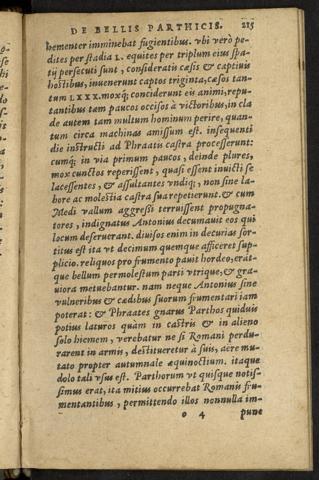 DE BELLIS PARTHICIS. 215
hementer imminebat fugientibus. vbi verò pe-
dites per stadia L. equites per triplum eius spa-
tij persecuti sunt, consideratis cæsis & captiuis
hostibus, inuenerunt captos triginta, cæsos tan-
tum LXXX. moxq; conciderunt eis animi, repu-
tantibus tam paucos occisos à victoribus, in cla
de autem tam multum hominum perire, quan-
tum circa machinas amissum est. insequenti
die instructi ad Phraatis castra processerunt:
cumq; in via primum paucos, deinde plures,
mox cunctos reperissent, quasi essent inuicti se
lacessentes, & assultantes vndiq;, non sine la-
bore ac molestia castra sua repetierunt. & cum
Medi vallum aggressi terruissent propugna-
tores, indignatus Antonius decumauit eos qui
locum deseruerant. diuisos enim in decurias sor-
titus est ita vt decimum quemque afficeret sup-
plicio. reliquos pro frumento pauit hordeo, erat-
que bellum permolestum paris vtrique, & gra-
uiora metuebantur. nam neque Antonius sine
vulneribus & cædibus suorum frumentari iam
poterat: & Phraates gnarus Parthos quiduis
potius laturos quam in castris & in alieno
solo hiemem, verebatur ne si Romani perdu-
rarent in armis, destitueretur à suis, aëre mu-
tato propter autumnale æquinoctium. itaque
dolo tali vsus est. Parthorum vt quisque notis-
simus erat, ita mitius occurrebat Romanis fru-
mentantibus, permittendo illos nonnulla im-
o 4 pune